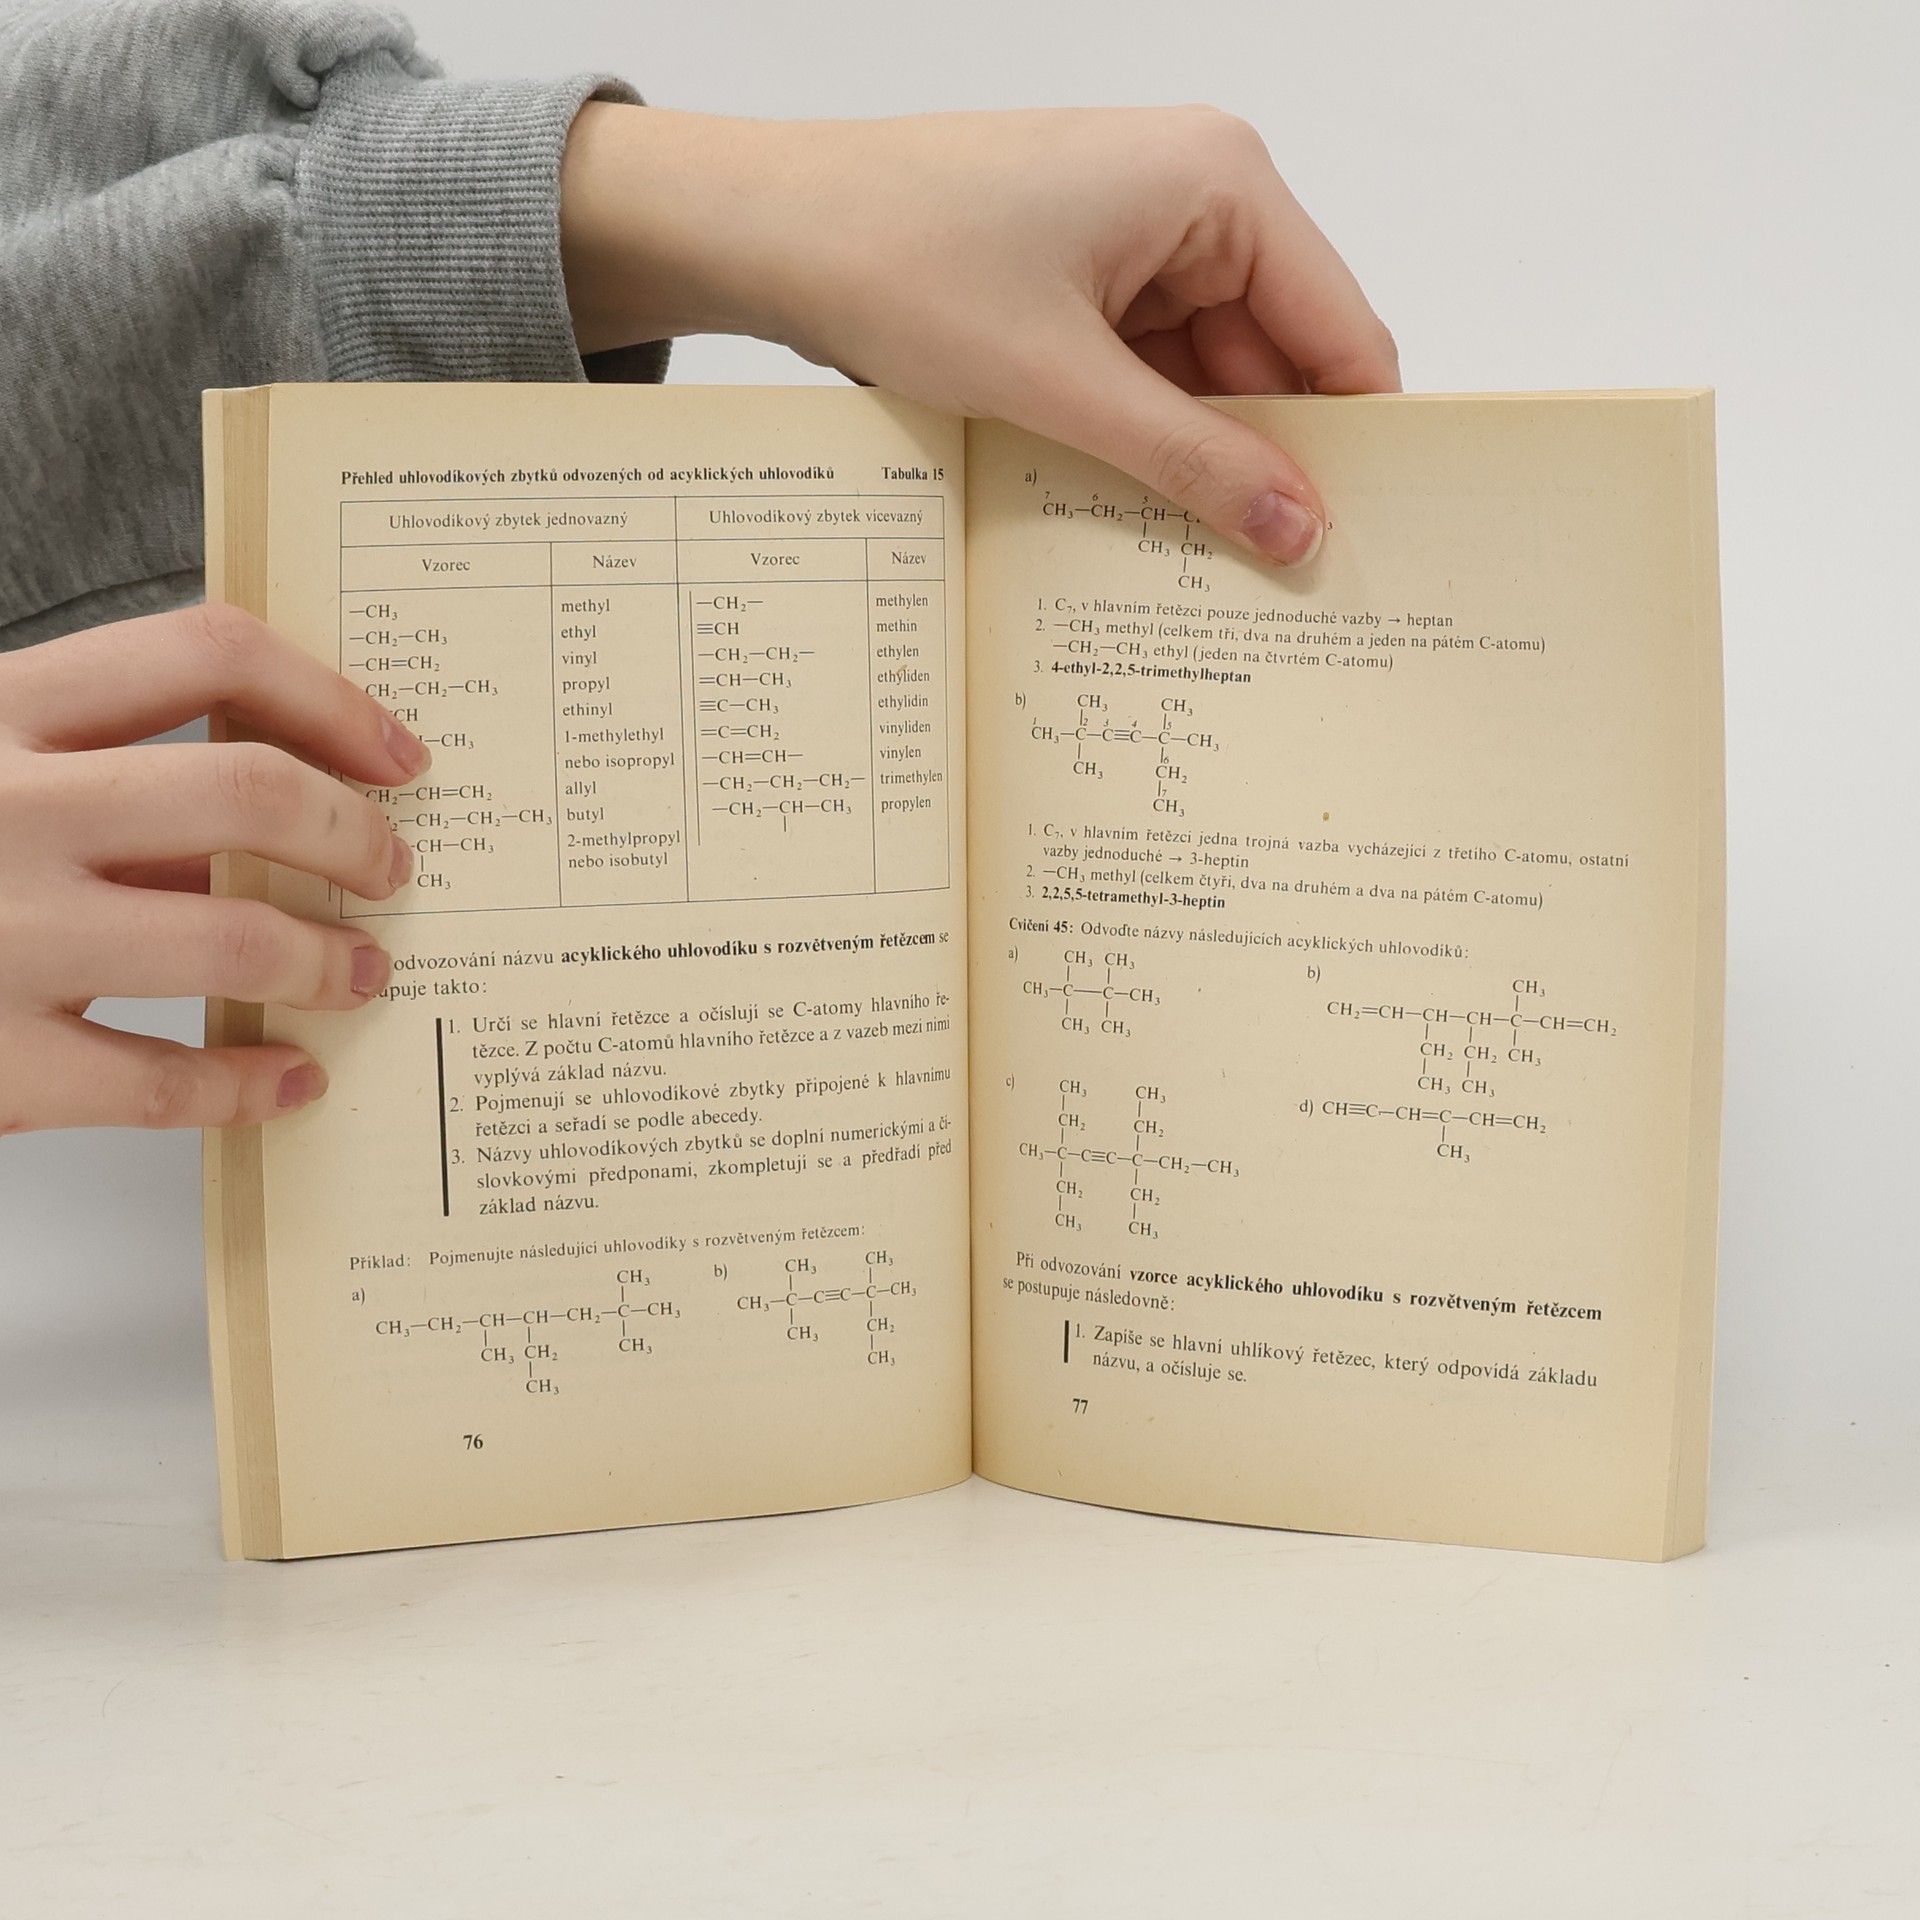 Přehled uhlovodíkových zbytků odvozených od acyklických uhlovodíků Tabulka 15
Uhlovodíkový zbytek jednovazný Uhlovodíkový zbytek vícevazný
Vzorec Název Vzorec Název
—CH₃ methyl —CH₂— methylen
—CH₂—CH₃ ethyl ≡CH methin
—CH=CH₂ vinyl —CH₂—CH₂— ethylen
CH₂—CH₂—CH₃ propyl =CH—CH₃ ethyliden
CH ethinyl ≡C—CH₃ ethylidin
—CH₃ 1-methylethyl =C=CH₂ vinyliden
nebo isopropyl —CH=CH— vinylen
CH₂—CH=CH₂ allyl —CH₂—CH₂—CH₂— trimethylen
—CH₂—CH₂—CH₃ butyl —CH₂—CH—CH₃ propylen
—CH—CH₃ 2-methylpropyl
nebo isobutyl
CH₃
odvozování názvu acyklického uhlovodíku s rozvětveným řetězcem se
takto:
1. Určí se hlavní řetězce a očíslují se C-atomy hlavního ře-
tězce. Z počtu C-atomů hlavního řetězce a z vazeb mezi nimi
vyplývá základ názvu.
2. Pojmenují se uhlovodíkové zbytky připojené k hlavnímu
řetězci a seřadí se podle abecedy.
3. Názvy uhlovodíkových zbytků se doplní numerickými a čí-
slovkovými předponami, zkompletují se a předřadí před
základ názvu.
Příklad: Pojmenujte následující uhlovodíky s rozvětveným řetězcem:
a)
CH₃
CH₃—CH₂—CH—CH—CH₂—C—CH₃
CH₃ CH₂ CH₃
CH₃
b)
CH₃ CH₃
CH₃—C—C≡C—C—CH₃
CH₃ CH₂
CH₃
76
a)
7 6 5
CH₃—CH₂—CH—C
3
CH₃ CH₂
CH₃
1. C₇, v hlavním řetězci pouze jednoduché vazby → heptan
2. —CH₃ methyl (celkem tři, dva na druhém a jeden na pátém C-atomu)
—CH₂—CH₃ ethyl (jeden na čtvrtém C-atomu)
3. 4-ethyl-2,2,5-trimethylheptan
b)
CH₃ CH₃
1 2 3 4 5
CH₃—C—C≡C—C—CH₃
6
CH₃ CH₂
7
CH₃
1. C₇, v hlavním řetězci jedna trojná vazba vycházející z třetího C-atomu, ostatní
vazby jednoduché → 3-heptin
2. —CH₃ methyl (celkem čtyři, dva na druhém a dva na pátém C-atomu)
3. 2,2,5,5-tetramethyl-3-heptin
Cvičení 45: Odvoďte názvy následujících acyklických uhlovodíků:
a)
CH₃ CH₃
CH₃—C—C—CH₃
CH₃ CH₃
b)
CH₃
CH₂=CH—CH—CH—C—CH=CH₂
CH₂ CH₂ CH₃
CH₃ CH₃
c)
CH₃ CH₃
CH₂ CH₂
CH₃—C—C≡C—C—CH₂—CH₃
CH₂ CH₂
CH₃ CH₃
d) CH≡C—CH=C—CH=CH₂
CH₃
Při odvozování vzorce acyklického uhlovodíku s rozvětveným řetězcem
se postupuje následovně:
1. Zapíše se hlavní uhlíkový řetězec, který odpovídá základu
názvu, a očísluje se.
77